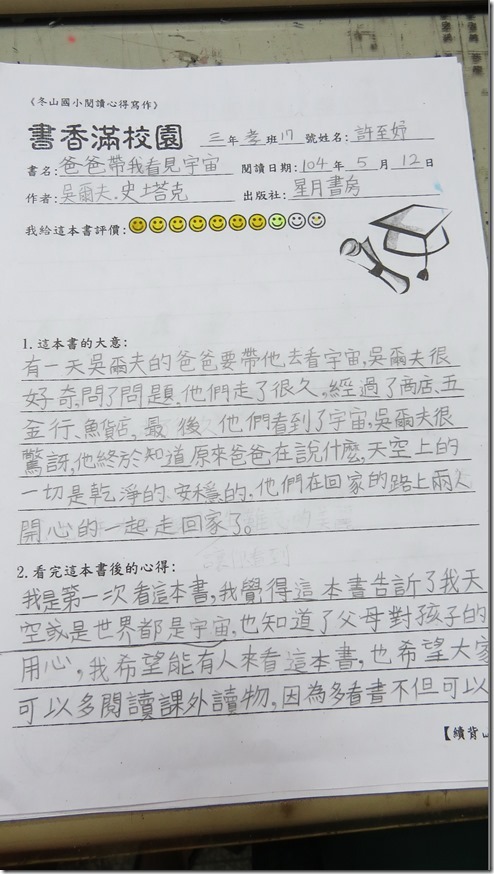 《冬山國小閱讀心得寫作》
書香滿校園 三年孝班17號姓名:許至妤
書名:爸爸帶我看見宇宙 閱讀日期:104年5月12日
作者:吳爾夫.史塔克 出版社:星月書房
我給這本書評價:
1.這本書的大意:
有一天吳爾夫的爸爸要帶他去看宇宙,吳爾夫很
好奇,問了問題,他們走了很久,經過了商店、五
金行、魚貨店,最後他們看到了宇宙,吳爾夫很
驚訝,他終於知道原來爸爸在說什麼,天空上的
一切是乾淨的、安穩的,他們在回家的路上兩人
開心的一起走回家了。
2.看完這本書後的心得:
我是第一次看這本書,我覺得這本書告訴了我天
空或是世界都是宇宙,也知道了父母對孩子的
用心,我希望能有人來看這本書,也希望大家
可以多閱讀課外讀物,因為多看書不但可以
【續背